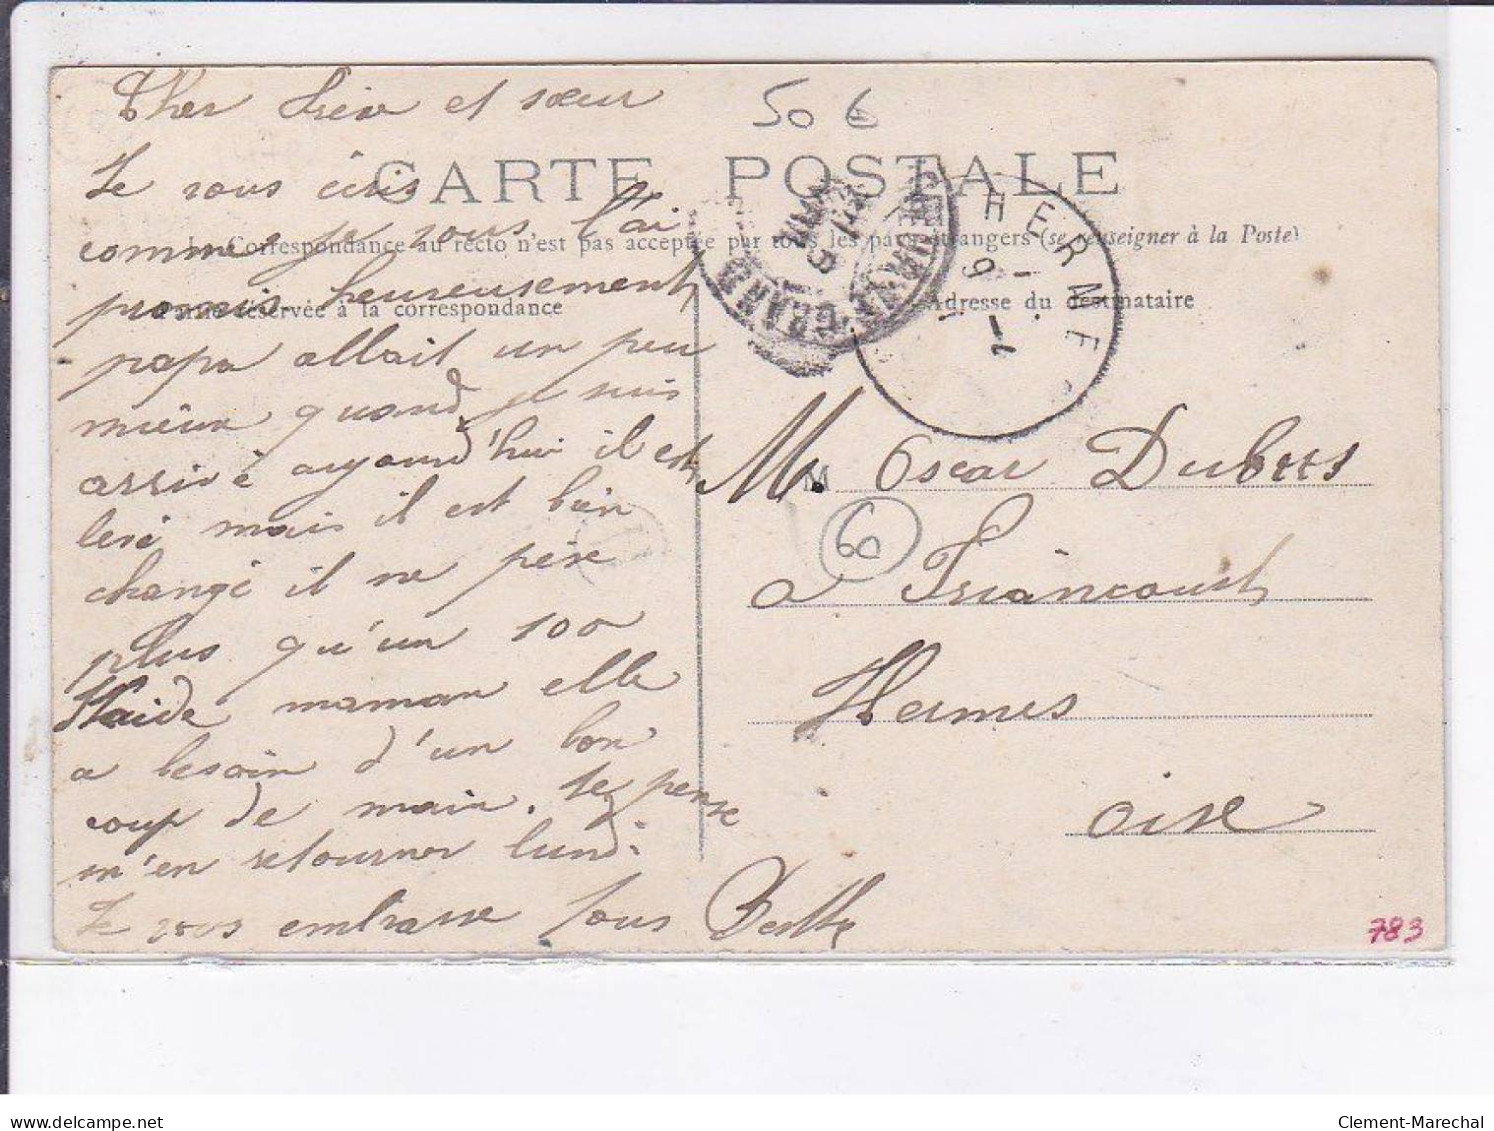 Cher frère et sœur
Je vous écris
comme je vous l'ai
promis heureusement
papa allait un peu
mieux quand je suis
arrivé aujourd'hui il est
levé mais il est bien
changé il ne pèse
plus qu'un 100
maman elle
a besoin d'un bon
coup de main. Je pense
m'en retourner lundi
Je vous embrasse tous Berthe
50 €
CARTE POSTALE
La Correspondance au recto n'est pas acceptée par tous les pays étrangers (se renseigner à la Poste)
Partie réservée à la correspondance
Adresse du destinataire
HERMES
M. Oscar Dubois
60
à Friancourt
Hermes
Oise
783
delcampe.net
Clement-Marechal